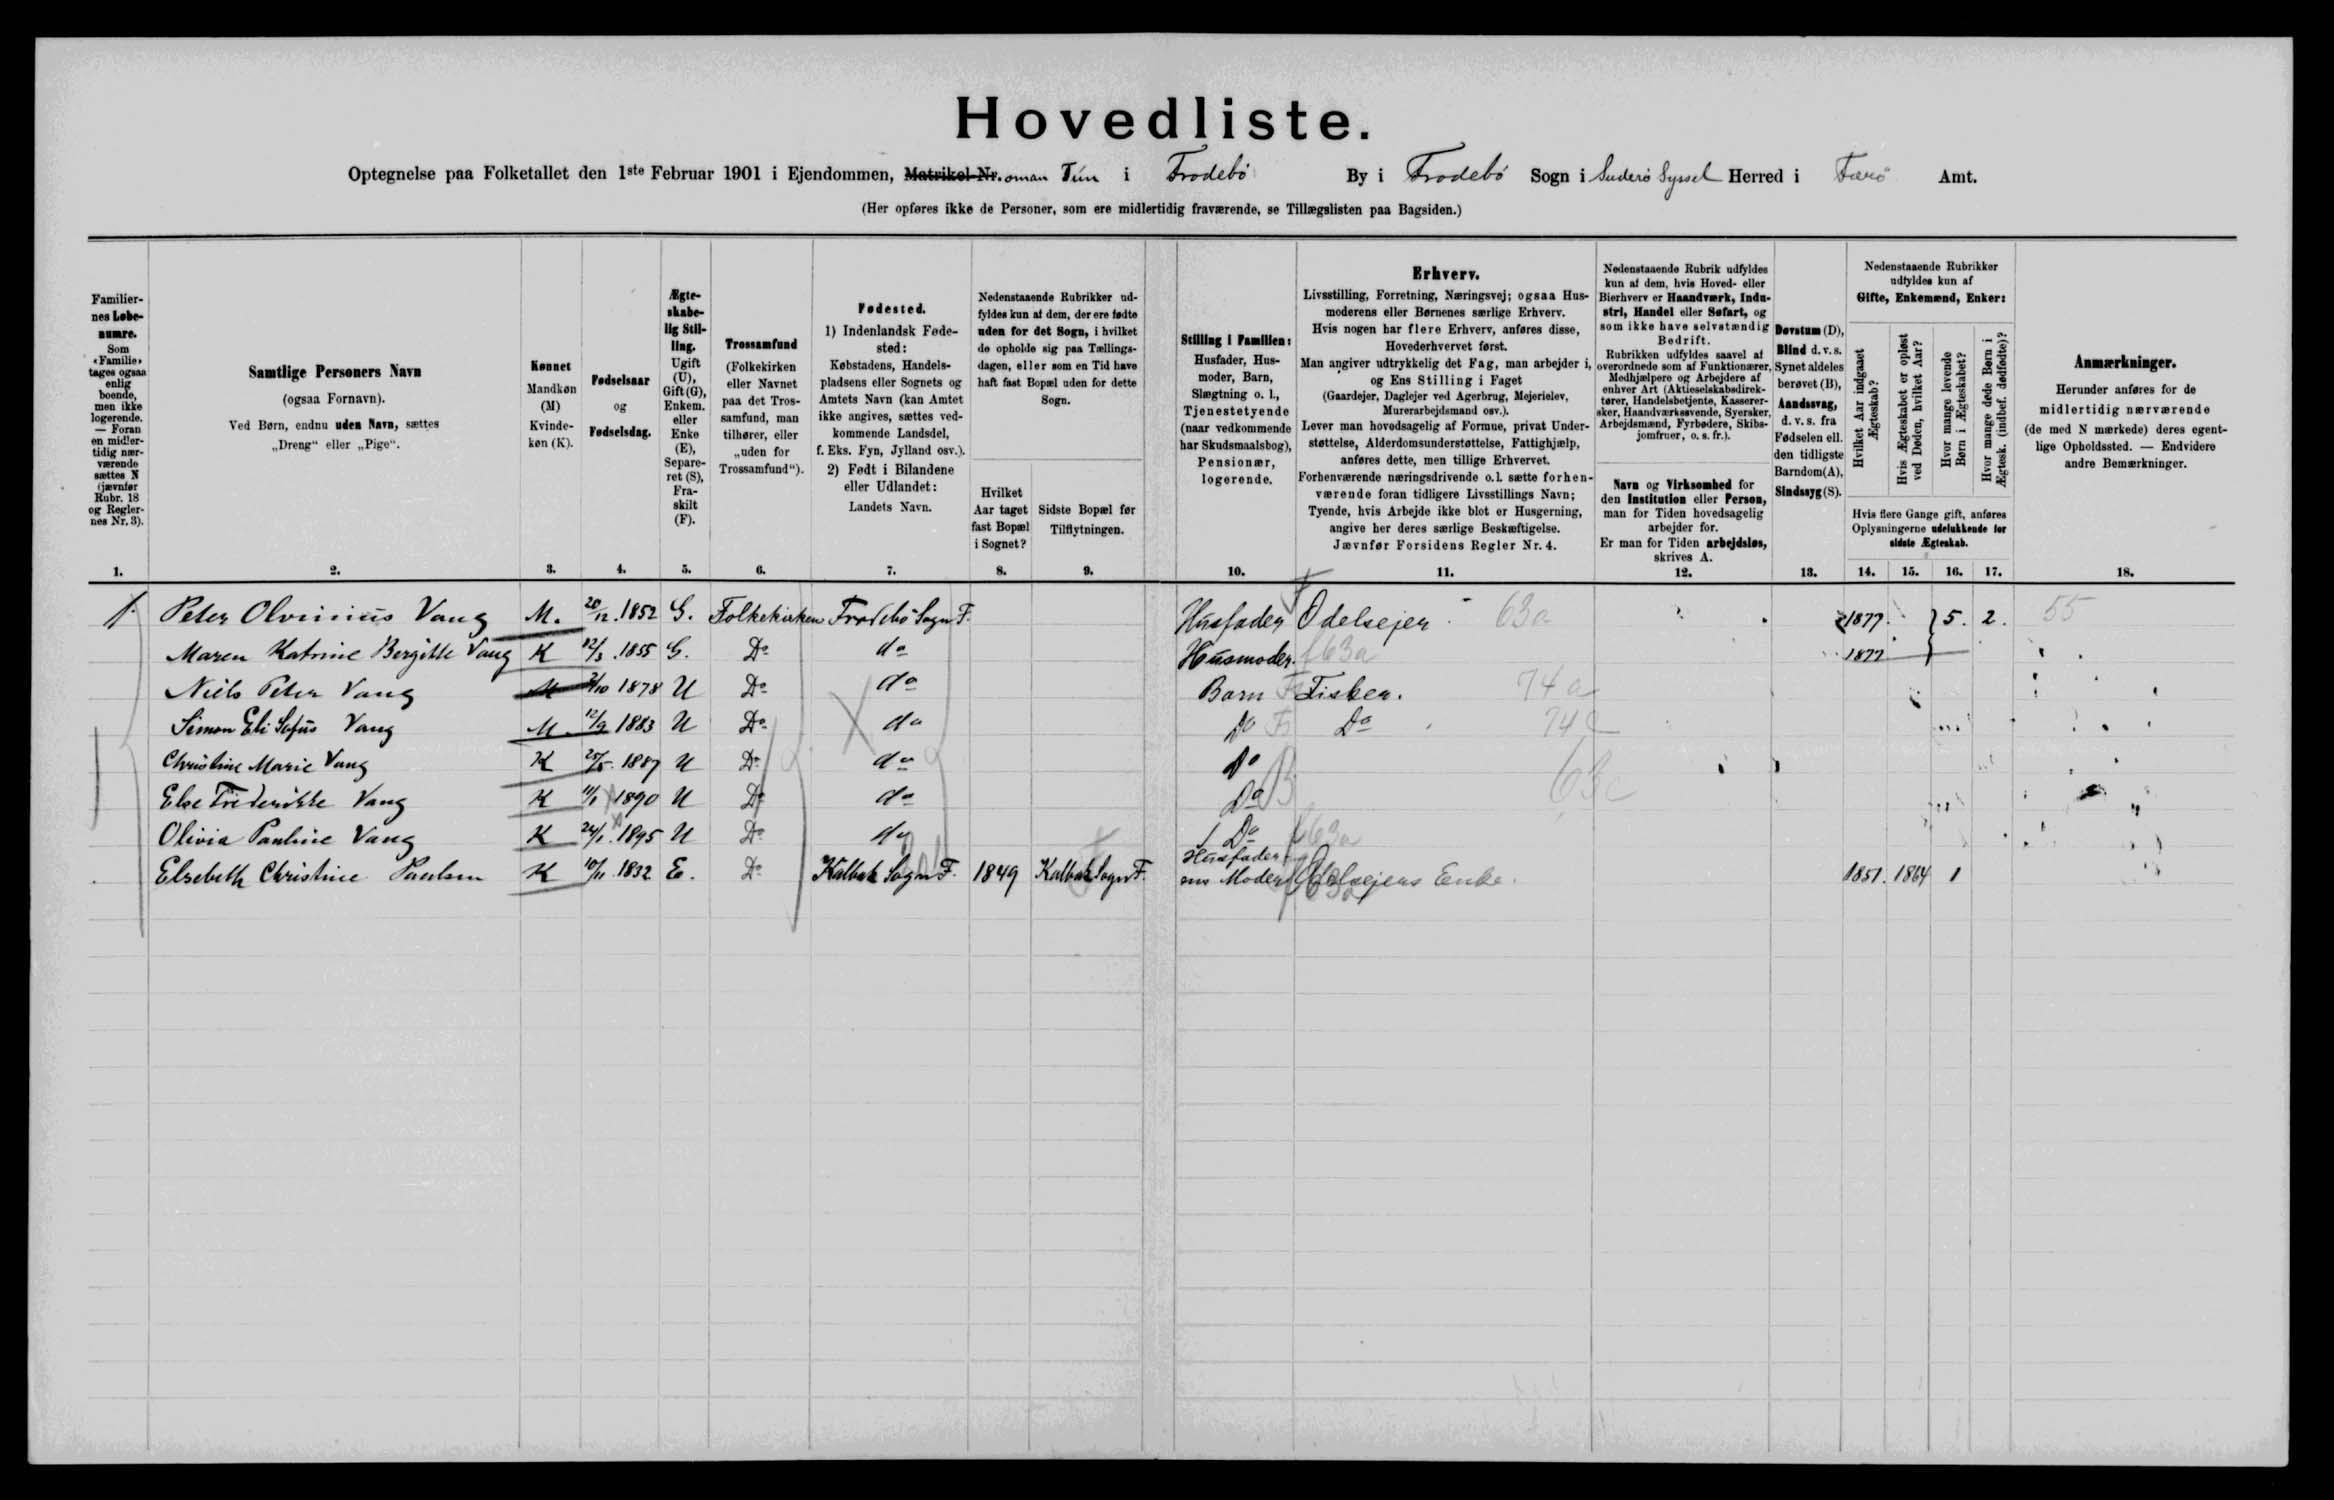 Hovedliste.
Optegnelse paa Folketallet den 1ste Februar 1901 i Ejendommen, Matrikel-Nr. oman Tún i Frodebø By i Frodebø Sogn i Suderø Syssel Herred i Færø Amt.
(Her opføres ikke de Personer, som ere midlertidig fraværende, se Tillægslisten paa Bagsiden.)
Familier-
nes Løbe-
numre.
Som
«Familie»
tages ogsaa
enlig
boende,
men ikke
logerende.
— Foran
en midler-
tidig nær-
værende
sættes N
(jævnfør
Rubr. 18
og Regler-
nes Nr. 3).
1.
Samtlige Personers Navn
(ogsaa Fornavn).
Ved Børn, endnu uden Navn, sættes
„Dreng“ eller „Pige“.
2.
Kønnet
Mandkøn
(M)
Kvinde-
køn (K).
3.
Fødselsaar
og
Fødselsdag.
4.
Ægte-
skabe-
lig Stil-
ling.
Ugift
(U),
Gift (G),
Enkem.
eller
Enke
(E),
Separe-
ret (S),
Fra-
skilt
(F).
5.
Trossamfund
(Folkekirken
eller Navnet
paa det Tros-
samfund, man
tilhører, eller
„uden for
Trossamfund“).
6.
Fødested.
1) Indenlandsk Føde-
sted:
Købstadens, Handels-
pladsens eller Sognets og
Amtets Navn (kan Amtet
ikke angives, sættes ved-
kommende Landsdel,
f. Eks. Fyn, Jylland osv.).
2) Født i Bilandene
eller Udlandet:
Landets Navn.
7.
Nedenstaaende Rubrikker ud-
fyldes kun af dem, der ere fødte
uden for det Sogn, i hvilket
de opholde sig paa Tællings-
dagen, eller som en Tid have
haft fast Bopæl uden for dette
Sogn.
Hvilket
Aar taget
fast Bopæl
i Sognet?
8.
Sidste Bopæl før
Tilflytningen.
9.
Stilling i Familien:
Husfader, Hus-
moder, Barn,
Slægtning o. l.,
Tjenestetyende
(naar vedkommende
har Skudsmaalsbog),
Pensionær,
logerende.
10.
Erhverv.
Livsstilling, Forretning, Næringsvej; ogsaa Hus-
moderens eller Børnenes særlige Erhverv.
Hvis nogen har flere Erhverv, anføres disse,
Hovederhvervet først.
Man angiver udtrykkelig det Fag, man arbejder i,
og Ens Stilling i Faget
(Gaardejer, Daglejer ved Agerbrug, Mejerielev,
Murerarbejdsmand osv.).
Lever man hovedsagelig af Formue, privat Under-
støttelse, Alderdomsunderstøttelse, Fattighjælp,
anføres dette, men tillige Erhvervet.
Forhenværende næringsdrivende o.l. sætte forhen-
værende foran tidligere Livsstillings Navn;
Tyende, hvis Arbejde ikke blot er Husgerning,
angive her deres særlige Beskæftigelse.
Jævnfør Forsidens Regler Nr. 4.
11.
Nedenstaaende Rubrik udfyldes
kun af dem, hvis Hoved- eller
Bierhverv er Haandværk, Indu-
stri, Handel eller Søfart, og
som ikke have selvstændig
Bedrift.
Rubrikken udfyldes saavel af
overordnede som af Funktionærer,
Medhjælpere og Arbejdere af
enhver Art (Aktieselskabsdirek-
tører, Handelsbetjente, Kasserer-
sker, Haandværkssvende, Syersker,
Arbejdsmænd, Fyrbødere, Skibs-
jomfruer, o. s. fr.).
Navn og Virksomhed for
den Institution eller Person,
man for Tiden hovedsagelig
arbejder for.
Er man for Tiden arbejdsløs,
skrives A.
12.
Døvstum (D),
Blind d. v. s.
Synet aldeles
berøvet (B),
Aandssvag,
d. v. s. fra
Fødselen ell.
den tidligste
Barndom (A),
Sindssyg (S).
13.
Nedenstaaende Rubrikker
udfyldes kun af
Gifte, Enkemænd, Enker:
Hvilket Aar indgaaet
Ægteskab?
Hvis Ægteskabet er opløst
ved Døden, hvilket Aar?
Hvor mange levende
Børn i Ægteskabet?
Hvor mange døde Børn i
Ægtesk. (indbef. dødfødte)?
Hvis flere Gange gift, anføres
Oplysningerne udelukkende for
sidste Ægteskab.
14. 15. 16. 17.
Anmærkninger.
Herunder anføres for de
midlertidig nærværende
(de med N mærkede) deres egent-
lige Opholdssted. — Endvidere
andre Bemærkninger.
18.
1. Peter Olvinius Vang M. 20/12 1852 G. Folkekirken Frodebø Sogn F. Husfader Odelsejer 63a 1877. 5. 2. 55
Maren Katrine Bergitte Vang K 12/3 1855 G. Do do Husmoder f63a 1877
Niels Peter Vang M /10 1878 U Do do Barn Fisker. 74a
Simon Eli Sofus Vang M 12/9 1883 U Do do Do Do 74
Christine Marie Vang K 25/5 1887 U Do do Do
Else Frederikke Vang K 11/1 1890 U Do do Do B 63c
Olivia Pauline Vang K 24/1 1895 U Do do Do f63a
Elsebeth Christine Paulsen K 10/11 1832 E. Do Kalbak Sogn F. 1849 Kalbak Sogn F. Husfader-
ens Moder Odelsejers Enke. 1851. 1864 1